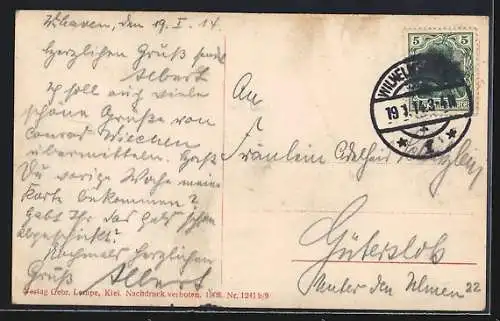 W'haven, den 19. I. 14.
Herzlichen Gruß sendet
Albert
Ich soll auch viele
schöne Grüße von
Conrad
übermitteln. Hast
Du vorige Woche meine
Karte bekommen?
Habt Ihr das Geld schon
abgeschickt?
Nochmals herzlichen
Gruß Albert
Verlag Gebr. Lempe, Kiel. Nachdruck verboten. Nr. 1241 b/9
5
WILHELMSH
19.1.14.3-4N.
* 1 *
An
Fräulein Adelheid
Gütersloh
Unter den Ulmen 22